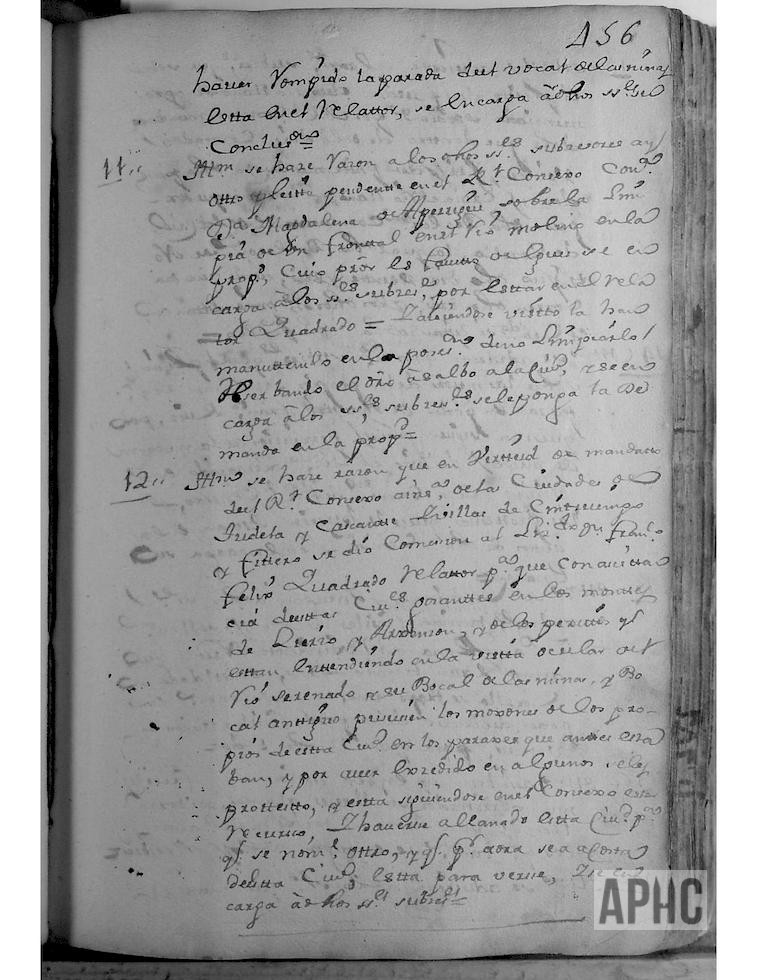 456
haver rompido la parada del vocal de las ninas
esta en el Relattor, se encarga a dhos ss.es su
Conclus.on =
11,, Ittm se haze razon a los dhos ss.es subresores ay
ottro pleitto pendiente en el R.l Consexo con
D.a Magdalena de Aperrigui sobre la Lim
pia de un fronttal en el Rio molino en la
prop.
carga a los ss.es subres.es por esttar en el Rela
tor Quadrado = I haviendose visto la han
manuttenido en la poses.on de no Limpiarlo /
observando el dro a salbo a la Ciu.d, y se en
carga a los ss.es subres.es se le ponga la De
manda en la prop.d =
12,, Ittm se haze razon que en virttud de mandatto
del R.l Consexo de las Ciudades de
Tudela y Cascante Villas de Cinttruenigo
y Fittero se dio Comision al Lz.do Dn. Fran.co
Felix Quadrado Relattor p.a que con asistten
cia de esttas Ciu.es en los monttes
de Zierzo y Argenzon, y de los peritos q.e
esttan entendiendo en la vistta ocular del
Rio serenado y su Bocal de las ninas, y Bo
cal anttiguo pusiesen los moxones de los pro-
pios de estta Ciu.d en los paraxes que anttes esta
ban, y por aver exzedido en algunos se les
prottestto, y estta siguiendose en el Consexo este
recurso, I haverse allanado estta Ciu.d p.a
q.e se nom.e ottro, y q.e p.r aora sea a costa
de estta Ciu.d estta para verse, I se en
carga a dhos ss.es subres.es =
APHC